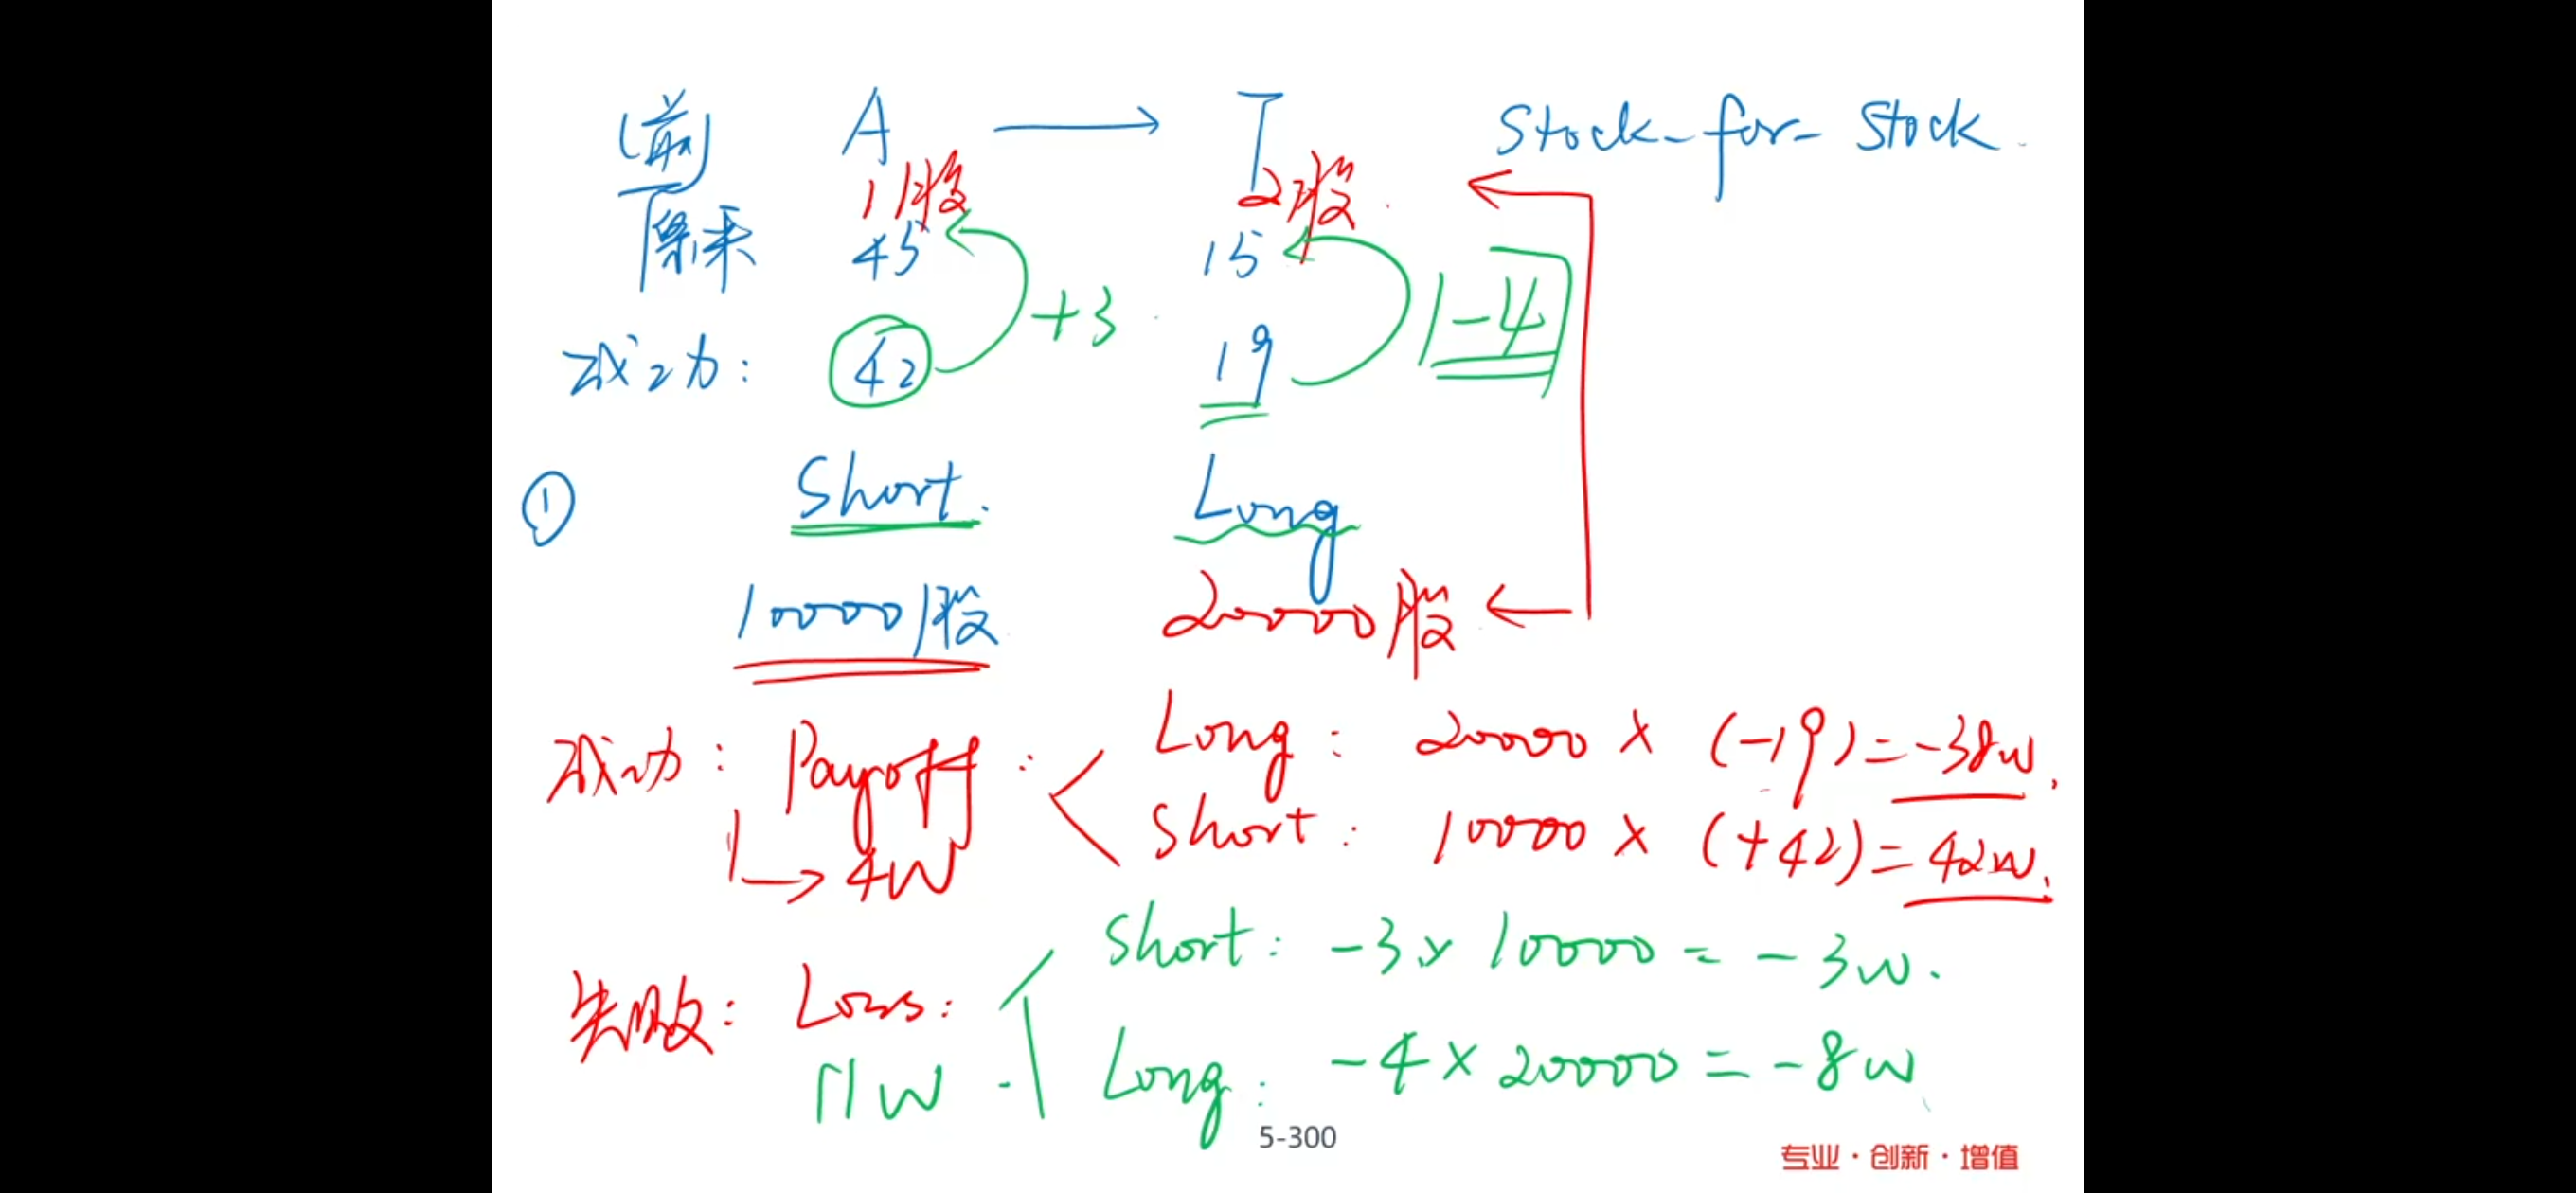 (前) A → T Stock-for-Stock.
1股 2股
原来 45 15
+3 -4
成功: 42 19
① Short. Long
10000股 20000股
成功: Payoff: Long: 20000 × (-19) = -38w.
Short: 10000 × (+42) = 42w.
→ 4W
失败: Loss: Short: -3 × 10000 = -3w.
11W Long: -4 × 20000 = -8w
5-300
专业·创新·增值